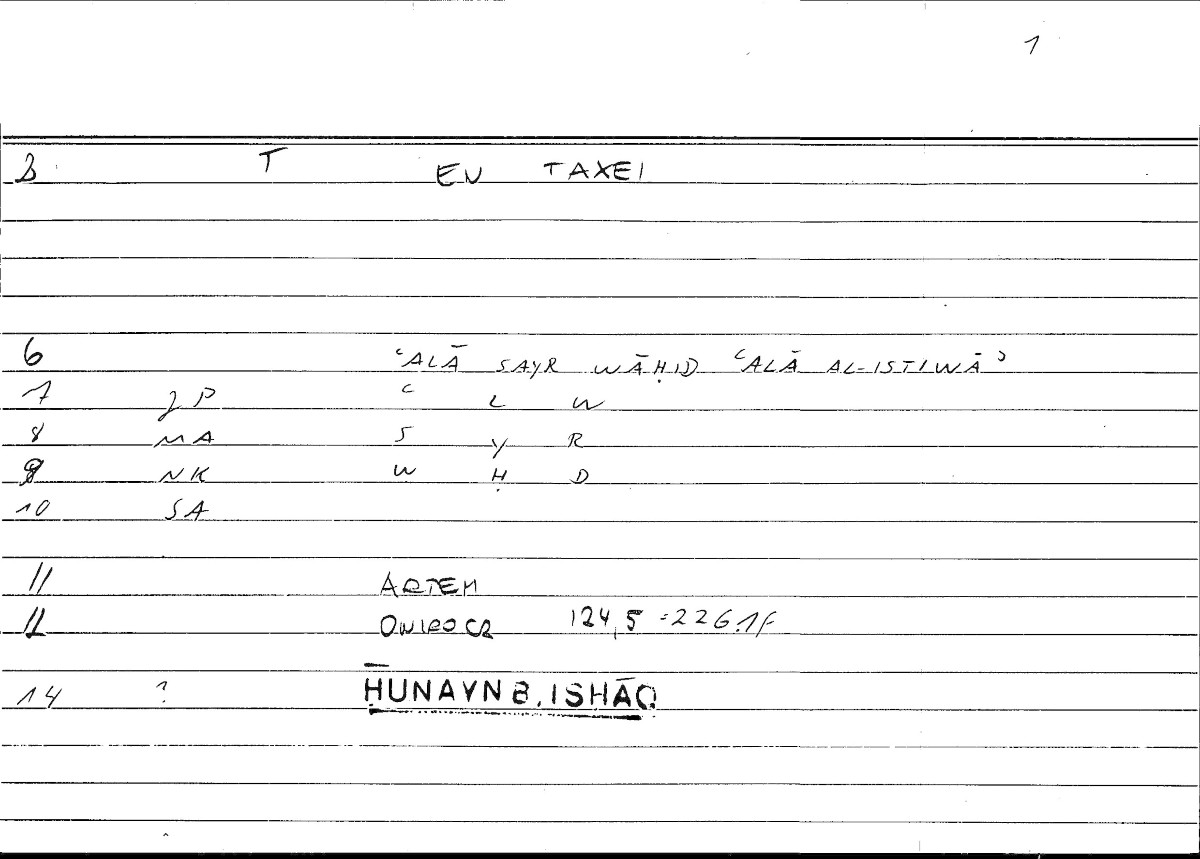 1
3 T EN TAXEI
6 ʿALĀ SAYR WĀḤID ʿALĀ AL-ISTIWĀʾ
7 JP ʿ L W
8 MA S Y R
9 NK W Ḥ D
10 SA
11 ARTEM
12 ONIROCR 124,5 = 226.1f
14 ? ḤUNAYN B. ISḤĀQ